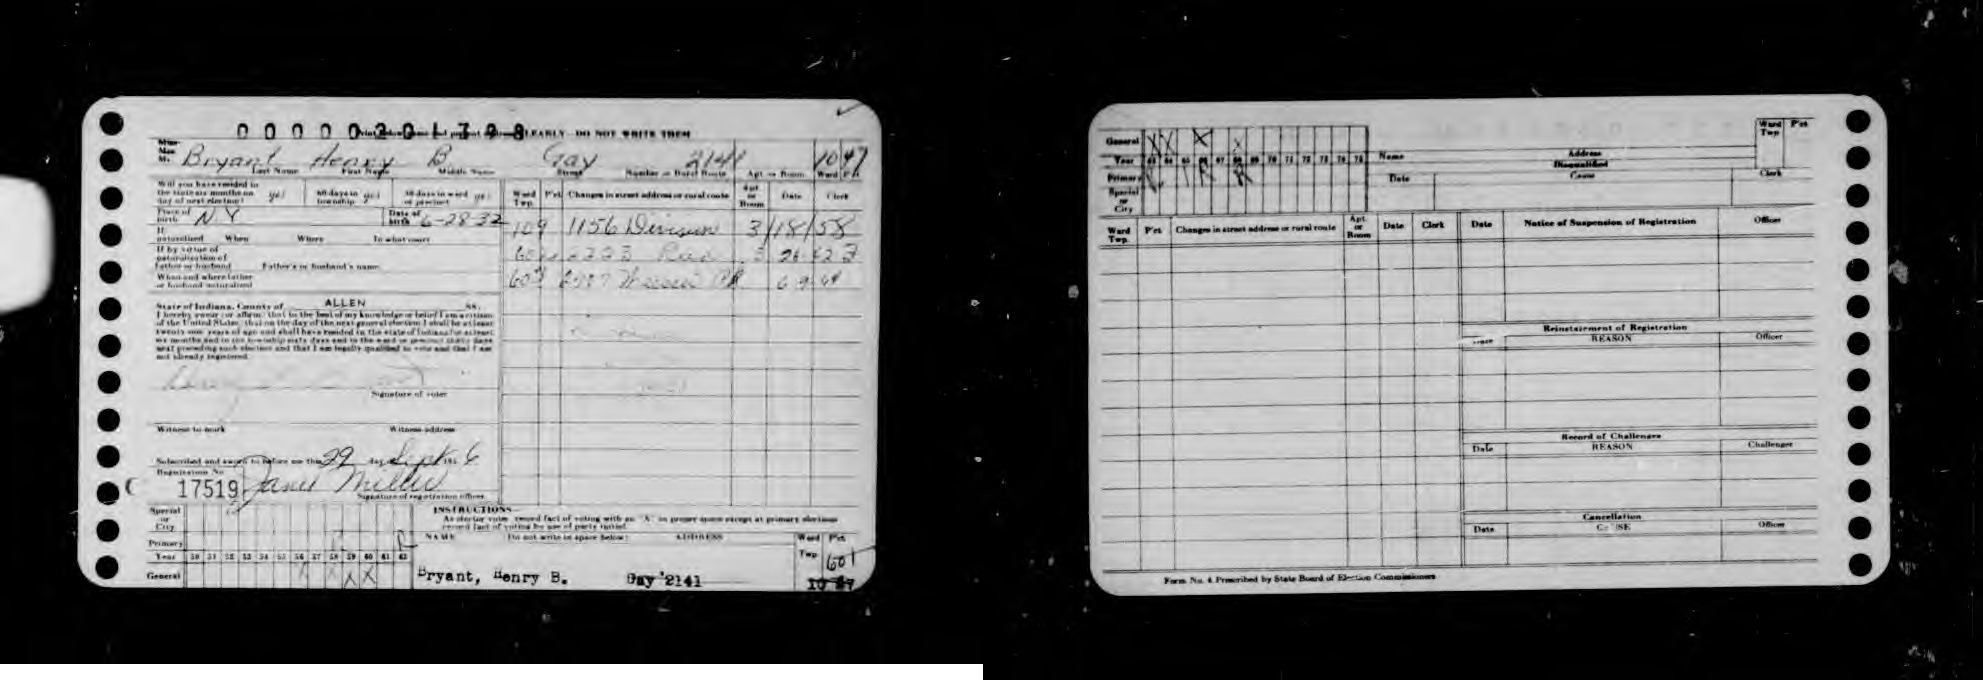 0 0 0 0 0 2 0 1 7 9 8 CLEARLY - DO NOT WRITE THEM
Miss
Mrs.
Mr. Bryant Henry B. Gay 2141 10 47
Last Name First Name Middle Name Street Number or Rural Route Apt. or Room Ward Pct.
Will you have resided in the state six months on day of next election? yes 60 days in township yes 30 days in ward or precinct yes
Place of birth N.Y. Date of birth 6-28-32
If naturalized When Where In what court
If by virtue of naturalization of father or husband Father's or husband's name
When and where father or husband naturalized
Ward Twp. Pct. Changes in street address or rural route Apt. or Room Date Clerk
109 1156 Division 3/18/58
2223
603 6-9-64
State of Indiana, County of ALLEN ss.
I hereby swear (or affirm) that to the best of my knowledge or belief I am a citizen
of the United States, that on the day of the next general election I shall be at least
twenty-one years of age and shall have resided in the state of Indiana for at least
six months and in the township sixty days and in the ward or precinct thirty days
next preceding such election and that I am legally qualified to vote and that I am
not already registered.
Signature of voter
Witness to mark Witness address
Subscribed and sworn to before me this 29 day Sept 195 6
Registration No.
17519 Janet Miller
Signature of registration officer
INSTRUCTIONS—
As elector votes record fact of voting with an "X" in proper space except at primary elections
record fact of voting by use of party initial.
Special or City
Primary
Year 50 51 52 53 54 55 56 57 58 59 60 61 62
General X X X X
NAME (Do not write in space below) ADDRESS Ward Twp. Pct.
601
Bryant, Henry B. Gay 2141 10 47
General X X X X
Year 63 64 65 66 67 68 69 70 71 72 73 74 75
Primary R R
Special or City
Name Address Ward Twp. Pct.
Disqualified
Date Cause Clerk
Ward Twp. Pct. Changes in street address or rural route Apt. or Room Date Clerk
Date Notice of Suspension of Registration Officer
Reinstatement of Registration
REASON Officer
Record of Challenges
Date REASON Challenger
Cancellation
Date CAUSE Officer
Form No. 4 Prescribed by State Board of Election Commissioners